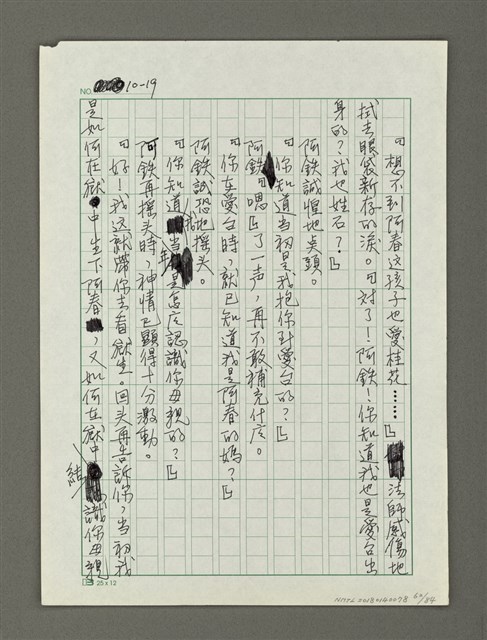 NO. 10-19
『想不到阿春这孩子也愛桂花……』法師感傷地
拭去眼袋新存的淚。『対了！阿鉄！你知道我也是愛台出
身的？我也姓石？』
阿鉄誠惶地点頭。
『你知道当初是我抱你到愛台的？』
阿鉄『嗯』了一声，再不敢補充什庅。
『你在愛台時，就已知道我是阿春的媽？』
阿鉄誠恐地摇头。
『你知道当年是怎庅認識你母親的？』
阿鉄再摇头時，神情已顕得十分激動。
『好！我这就帶你去看獄生。回头再告訴你，当初我
是如何在獄中生下阿春，又如何在獄中結識你母親
25x12
NMTL20180140078 60/84